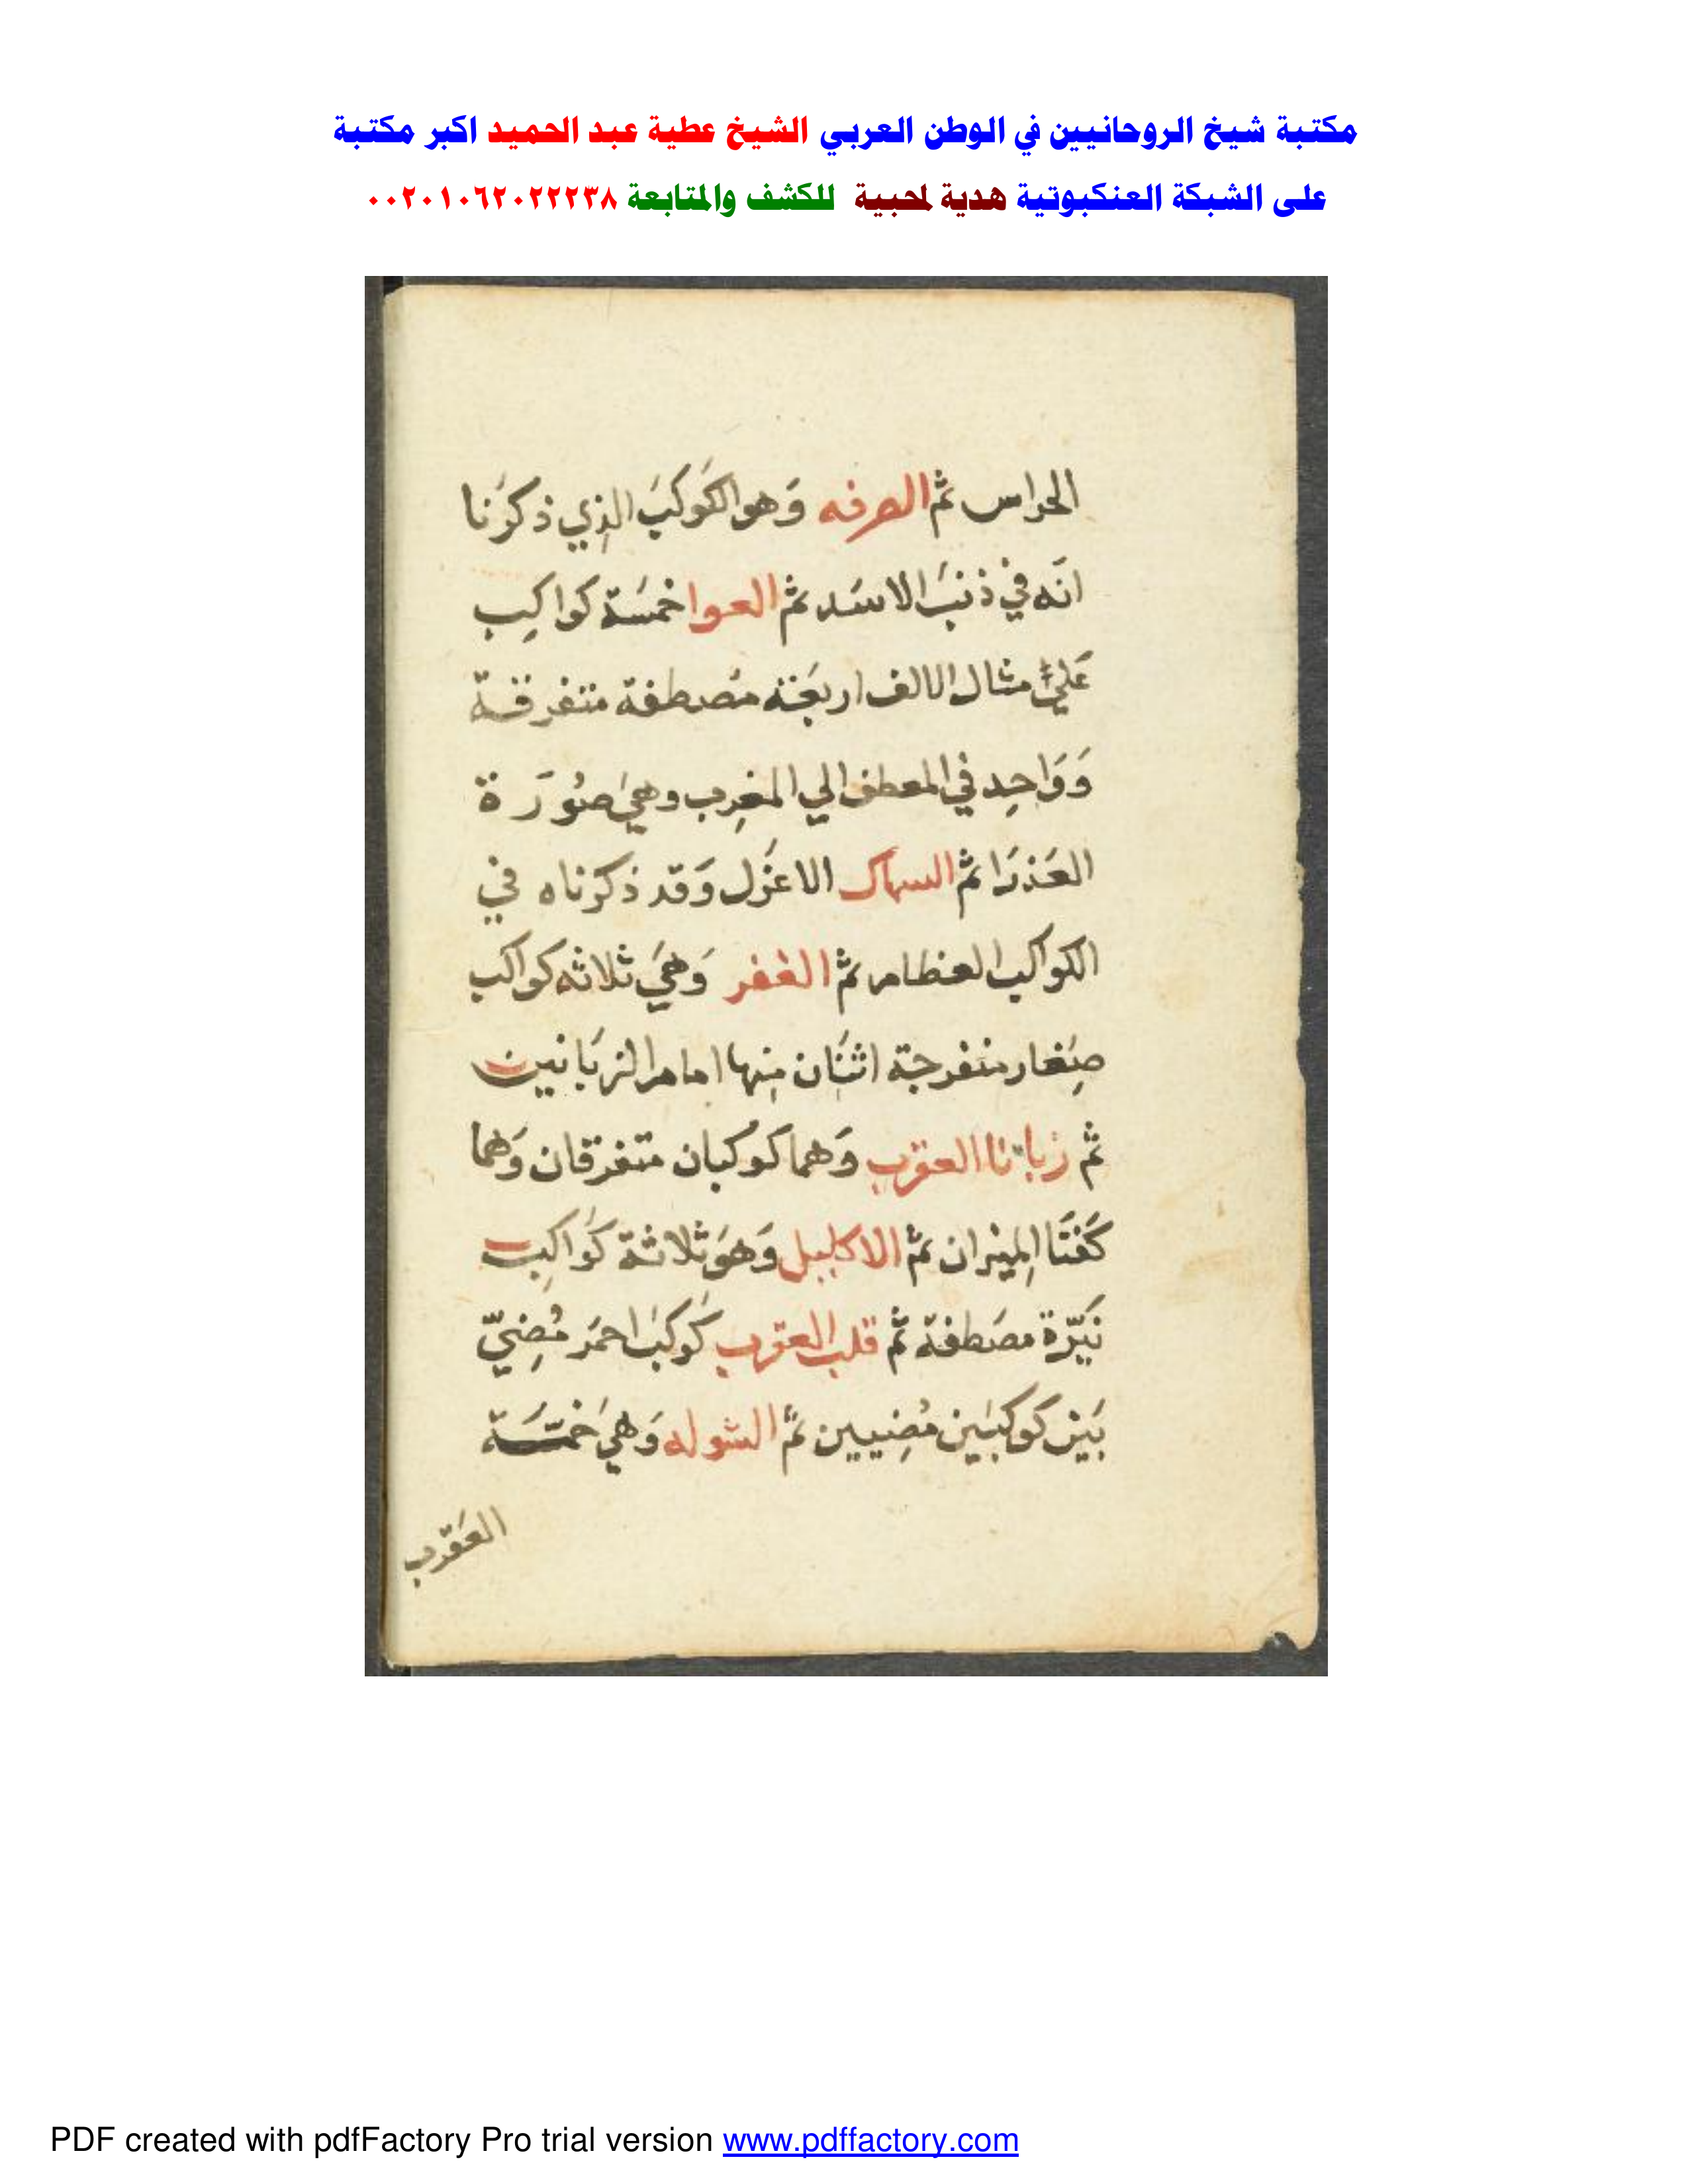 مكتبة شيخ الروحانيين في الوطن العربي الشيخ عطية عبد الحميد اكبر مكتبة
على الشبكة العنكبوتية هدية لمحبية للكشف والمتابعة ٠٠٢٠١٠٦٢٠٢٢٢٣٨
الحراس ثم الصرفه وَهو الكَوكبَ الذِي ذكرَنا
انَه في ذنبَ الاسَد ثم العوا خمسَة كواكِب
عَليَ مثال الالف اربعَة مصُطفة متفرقة
وَوَاحِد في المعطف الي المغرِب وهيَ صُورَة
العَذرَا ثم السماك الاعزَل وَقد ذكرناه في
الكواكب العظام ثم الغفر وَهيَ ثلاثه كواكب
صِغار منفرجة اثنَان مِنها امام الزبَانين
ثم زبانا العقرب وَهما كوكبان متفرقان وَهما
كَفتَا المِيزان ثم الاكليل وَهوَ ثلاثة كوَاكِب
نَيّرة مصَطفة ثم قلب العقرب كوَكبَ احمَر مُضِيّ
بَين كوكبَين مُضِيين ثم الشوله وَهيَ خمسَة
العَقرَب
PDF created with pdfFactory Pro trial version www.pdffactory.com